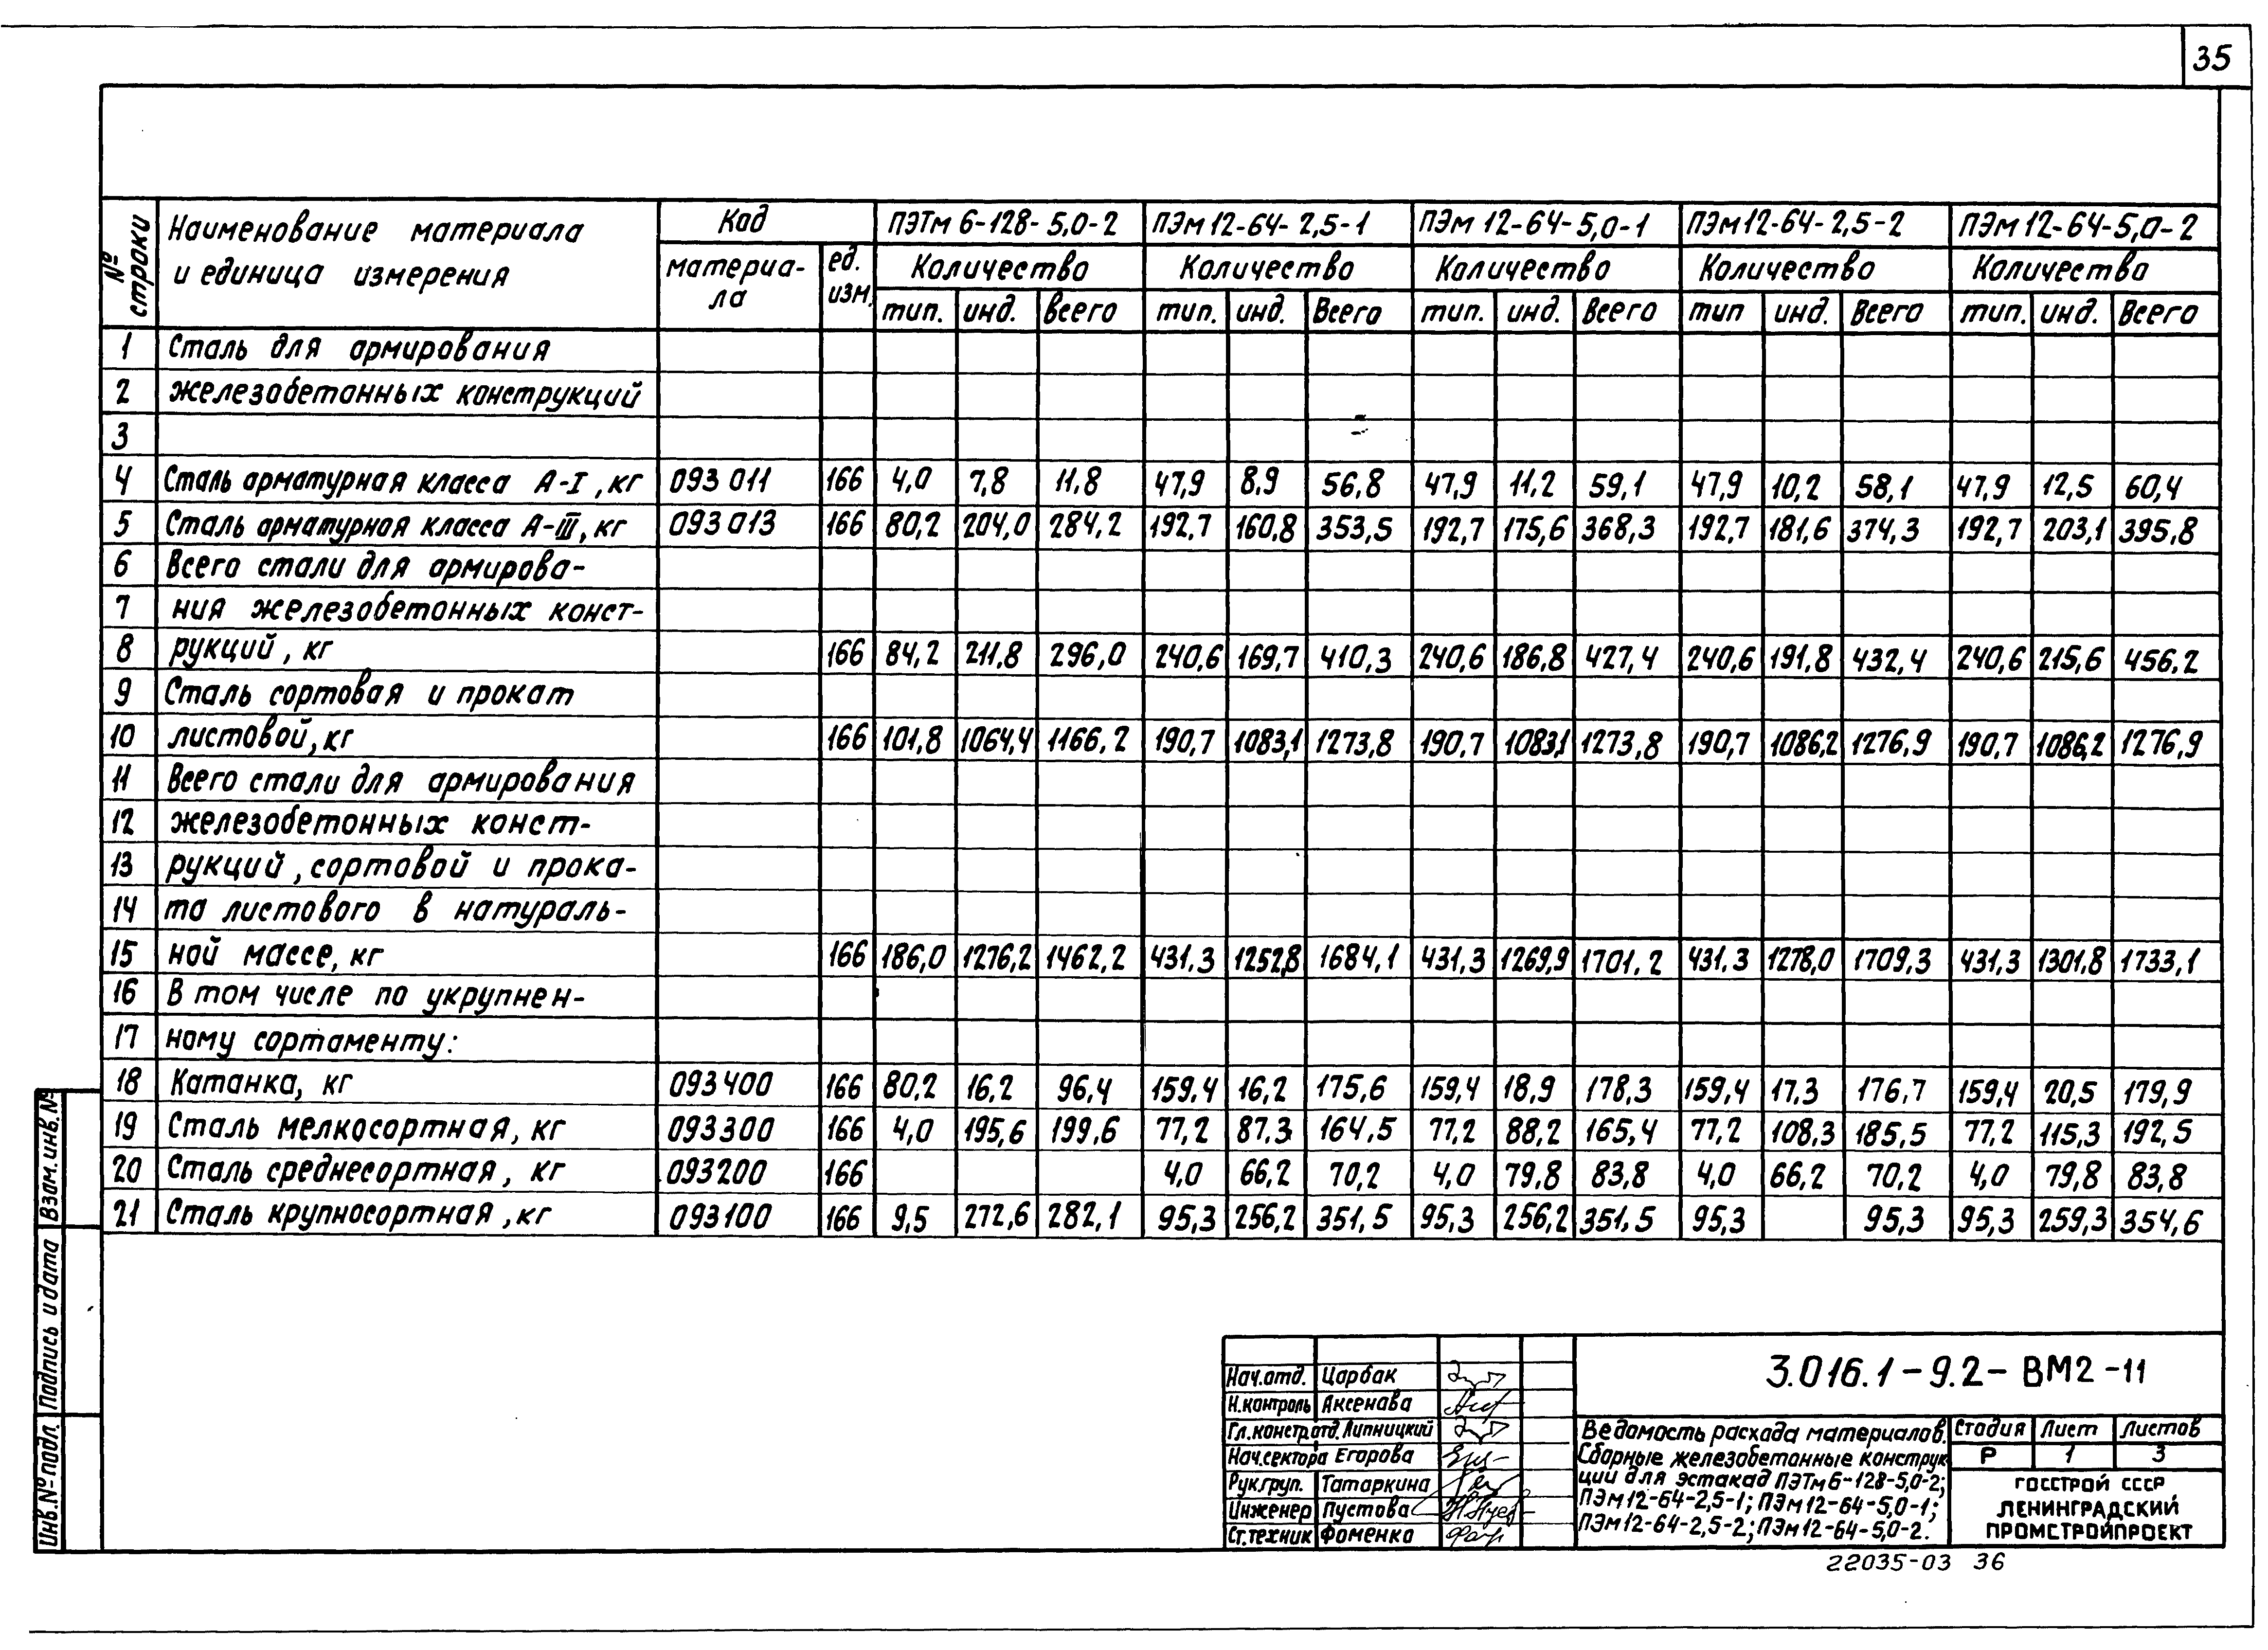 35
№ строки
Наименование материала и единица измерения
Код
материа-ла
ед. изм.
ПЭТм 6-128-5,0-2
ПЭм 12-64-2,5-1
ПЭм 12-64-5,0-1
ПЭм 12-64-2,5-2
ПЭм 12-64-5,0-2
Количество Количество Количество Количество Количество
тип. инд. всего тип. инд. Всего тип. инд. Всего тип инд. Всего тип. инд. Всего
1 Сталь для армирования
2 железобетонных конструкций
3
4 Сталь арматурная класса А-I, кг 093 011 166 4,0 7,8 11,8 47,9 8,9 56,8 47,9 11,2 59,1 47,9 10,2 58,1 47,9 12,5 60,4
5 Сталь арматурная класса А-III, кг 093 013 166 80,2 204,0 284,2 192,7 160,8 353,5 192,7 175,6 368,3 192,7 181,6 374,3 192,7 203,1 395,8
6 Всего стали для армирова-
7 ния железобетонных конст-
8 рукций, кг 166 84,2 211,8 296,0 240,6 169,7 410,3 240,6 186,8 427,4 240,6 191,8 432,4 240,6 215,6 456,2
9 Сталь сортовая и прокат
10 листовой, кг 166 101,8 1064,4 1166,2 190,7 1083,1 1273,8 190,7 1083,1 1273,8 190,7 1086,2 1276,9 190,7 1086,2 1276,9
11 Всего стали для армирования
12 железобетонных конст-
13 рукций, сортовой и прока-
14 та листового в натураль-
15 ной массе, кг 166 186,0 1276,2 1462,2 431,3 1252,8 1684,1 431,3 1269,9 1701,2 431,3 1278,0 1709,3 431,3 1301,8 1733,1
16 В том числе по укрупнен-
17 ному сортаменту:
18 Катанка, кг 093400 166 80,2 16,2 96,4 159,4 16,2 175,6 159,4 18,9 178,3 159,4 17,3 176,7 159,4 20,5 179,9
19 Сталь мелкосортная, кг 093300 166 4,0 195,6 199,6 77,2 87,3 164,5 77,2 88,2 165,4 77,2 108,3 185,5 77,2 115,3 192,5
20 Сталь среднесортная, кг 093200 166 4,0 66,2 70,2 4,0 79,8 83,8 4,0 66,2 70,2 4,0 79,8 83,8
21 Сталь крупносортная, кг 093100 166 9,5 272,6 282,1 95,3 256,2 351,5 95,3 256,2 351,5 95,3 95,3 95,3 259,3 354,6
Взам. инв. №
Подпись и дата
Инв. № подл.
Нач. отд. Царбак
Н. контроль Аксенова
Гл. констр. отд. Липницкий
Нач. сектора Егорова
Рук. груп. Татаркина
Инженер Пустова
Ст. техник Фоменко
3.016.1-9.2-ВМ2-11
Ведомость расхода материалов.
Сборные железобетонные конструк
ции для эстакад ПЭТм 6-128-5,0-2;
ПЭм 12-64-2,5-1; ПЭм 12-64-5,0-1;
ПЭм 12-64-2,5-2; ПЭм 12-64-5,0-2.
Стадия Лист Листов
Р 1 3
ГОССТРОЙ СССР
ЛЕНИНГРАДСКИЙ
ПРОМСТРОЙПРОЕКТ
22035-03 36